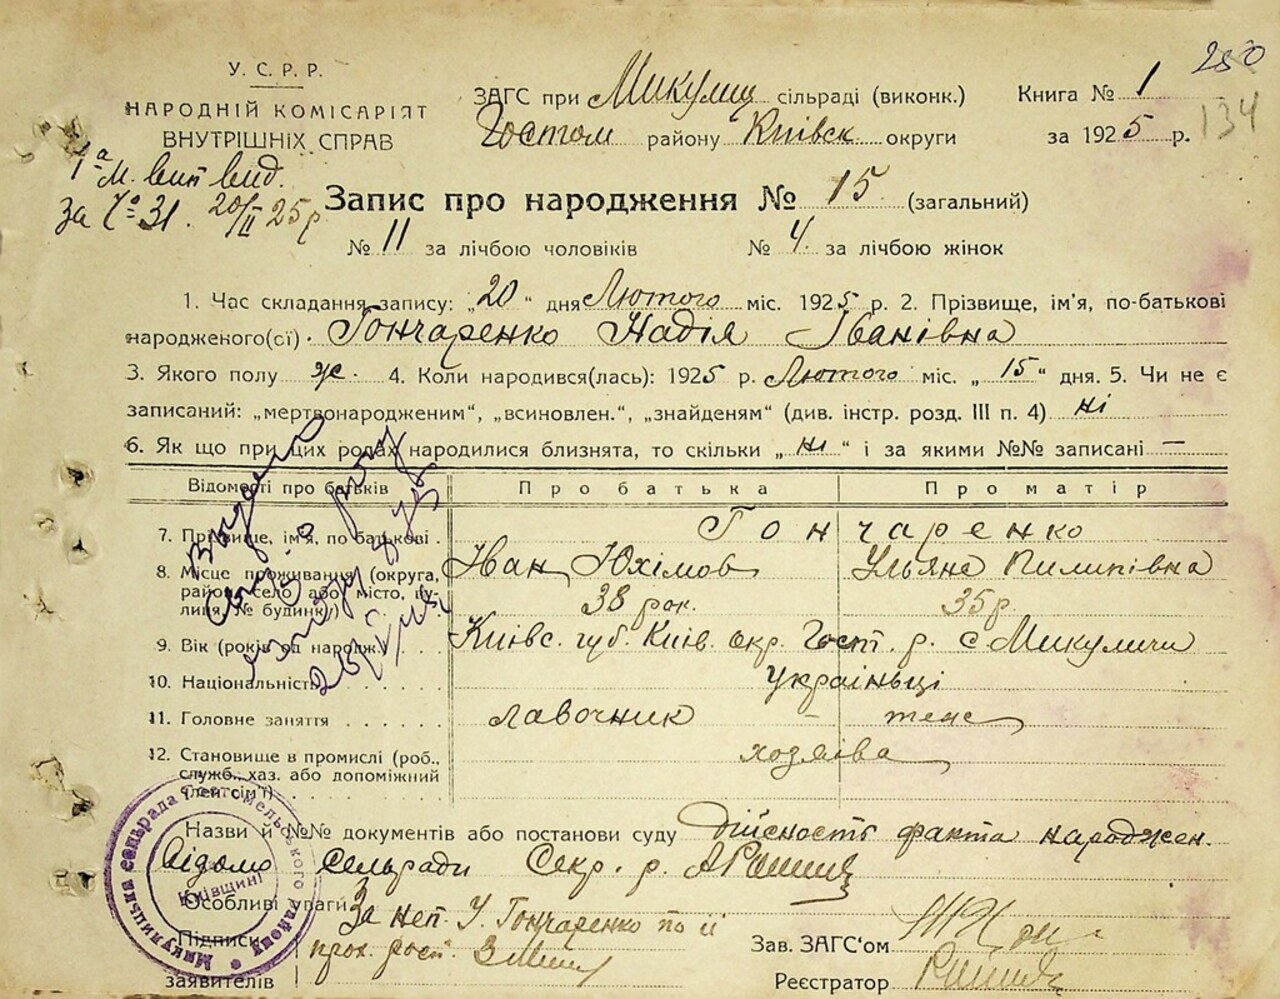 250
134
У. С. Р. Р.
НАРОДНІЙ КОМІСАРІЯТ
ВНУТРІШНІХ СПРАВ
ЗАГС при Микулиц сільраді (виконк.) Книга № 1
Гостом району Київск округи за 1925 р.
1а м. вип вид.
за № 31. 20/II 25 р
Запис про народження № 15 (загальний)
№ 11 за лічбою чоловіків № 4 за лічбою жінок
1. Час складання запису: „20“ дня Лютого міс. 1925 р. 2. Прізвище, ім'я, по-батькові
народженого(сї). Гончаренко Надія Іванівна
3. Якого полу ж. 4. Коли народився(лась): 1925 р. Лютого міс. „15“ дня. 5. Чи не є
записаний: „мертвонародженим“, „всиновлен.“, „знайденям“ (див. інстр. розд. III п. 4) ні
6. Як що при цих родах народилися близнята, то скільки „ні“ і за якими №№ записані —
Відомості про батьків Про батька Про матір
7. Прізвище, ім'я, по батькові . Гончаренко
Иван Юхімов Ульяна Пилипівна
8. Місце проживання (округа,
район, село або місто, ву-
лиця, № будинку) 38 рок. 35 р.
9. Вік (років од народж. Київс. губ. Київ. окр. Гост. р. с Микуличи
10. Національність Україньці
11. Головне заняття лавочник – теж
12. Становище в промислі (роб.,
служб., хаз. або допоміжний
член сім'ї) хозяіва
Назви й №№ документів або постанови суду Дійсность факта народжен.
Відомо сельради Секр. р.
Особливі уваги За неп. У. Гончаренко по її
прох. росп.
Підписи
заявителів
Зав. ЗАГС'ом
Реєстратор
Микулицька сельрада Гостомельського району
Київщині